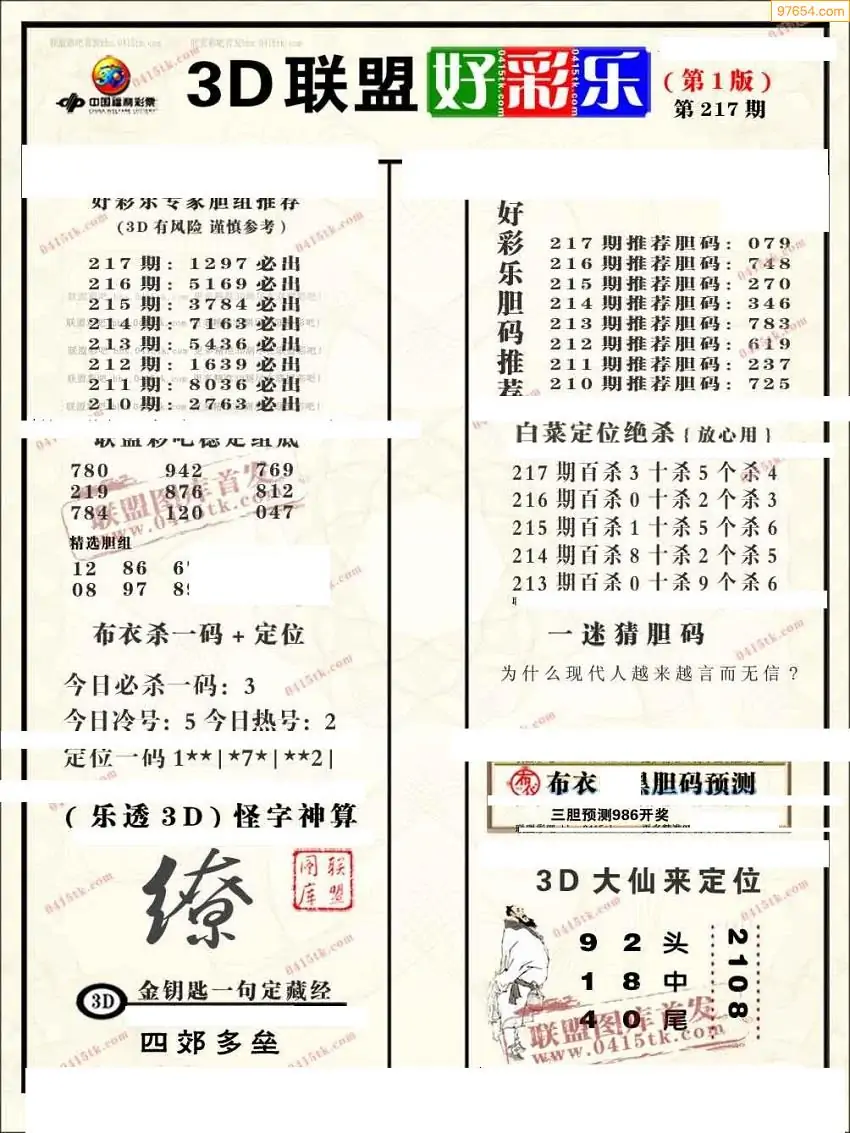 97654.com
中国福利彩票
CHINA WELFARE LOTTERY
3D联盟好彩乐
0415tk.com
(第1版)
第217期
好彩乐专家胆组推荐
(3D有风险 谨慎参考)
217期: 1297必出
216期: 5169必出
215期: 3784必出
214期: 7163必出
213期: 5436必出
212期: 1639必出
211期: 8036必出
210期: 2763必出
联盟彩吧稳定组底
780 942 769
219 876 812
784 120 047
精选胆组
12 86
08 97
布衣杀一码+定位
今日必杀一码: 3
今日冷号: 5 今日热号: 2
定位一码1**|*7*|**2|
(乐透3D)怪字神算
缭
联盟图库
3D
金钥匙一句定藏经
四郊多垒
好彩乐胆码推荐
217期推荐胆码: 079
216期推荐胆码: 748
215期推荐胆码: 270
214期推荐胆码: 346
213期推荐胆码: 783
212期推荐胆码: 619
211期推荐胆码: 237
210期推荐胆码: 725
白菜定位绝杀{放心用}
217期百杀3十杀5个杀4
216期百杀0十杀2个杀3
215期百杀1十杀5个杀6
214期百杀8十杀2个杀5
213期百杀0十杀9个杀6
一迷猜胆码
为什么现代人越来越言而无信?
布衣
胆码预测
三胆预测986开奖
3D大仙来定位
9 2 头
1 8 中
4 0 尾
2108
联盟图库首发
www.0415tk.com